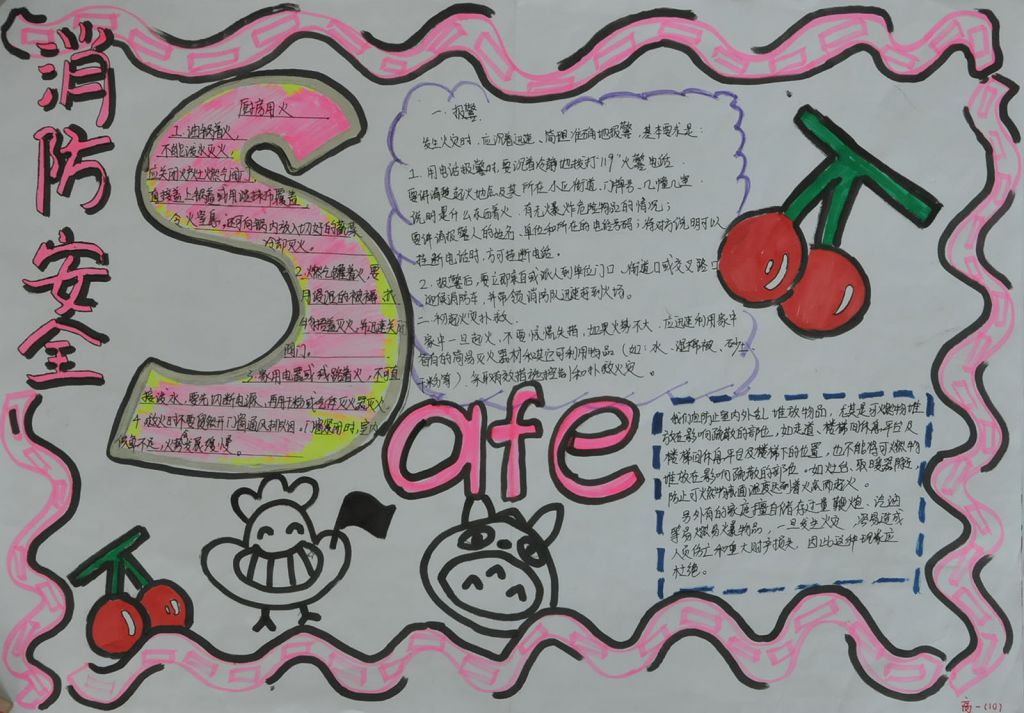 消防安全
Safe
厨房用火
1.油锅着火,
不能泼水灭火,
应关闭炉灶燃气阀门,
直接盖上锅盖或用湿抹布覆盖
令火窒息,还可向锅内放入切好的蔬菜
冷却灭火。
2.燃气罐着火,要
用浸湿的被褥、
捂盖灭火,并迅速关闭
阀门。
3.家用电器或线路着火,不可直
接泼水,要先切断电源,再用干粉或灭火器灭火。
4.救火时不要贸然开门窗
一.报警.
发生火灾时,应沉着迅速、简短准确地报警,基本要求是:
1.用电话报警时,要沉着冷静地拨打"119"火警电话.
要讲清楚起火地点及其所在小区街道、门牌号、几幢几室.
说明是什么东西着火,有无爆炸危险物品的情况;
要讲清报警人的姓名、单位和所在的电话号码;待对方说明可以
挂断电话时,方可挂断电话。
2.报警后,要立即亲自或派人到单位门口、街道口或交叉路口
迎候消防车,并带领消防队迅速赶到火场。
二.初起火灾扑救.
家中一旦起火,不要惊慌失措,如果火势不大,应迅速利用家中
备有的简易灭火器材和其它可利用物品(如:水、湿棉被、砂土
干粉等)采取有效措施控制和扑救火灾。
我们应防止室内外乱堆放物品,尤其是可燃物堆
放在影响疏散的部位,如走道、楼梯间休息平台及
楼梯间休息平台及楼梯下的位置,也不能将可燃物
堆放在影响疏散的部位。如灶台、取暖器附近,
防止可燃物表面温度达到着火点而起火。
另外有的家庭擅自储存过量鞭炮、汽油
等易燃易爆物品,一旦发生火灾,容易造成
人员伤亡和重大财产损失,因此这种现象应
杜绝。
高一(10)